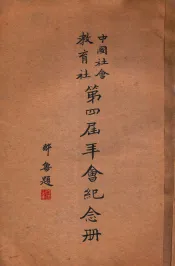 中國社會
教育社
第四屆年會紀念册